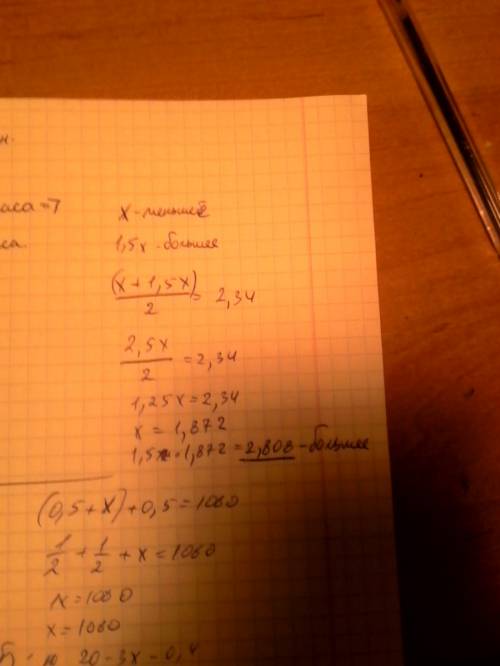 н.
часа = 7
са.
x - меньшее
1,5x - большее
(x + 1,5x)/2 = 2,34
2,5x/2 = 2,34
1,25x = 2,34
x = 1,872
1,5 · 1,872 = 2,808 - большее
(0,5 + x) + 0,5 = 1080
1/2 + 1/2 + x = 1080
x = 1080
x = 1080
20 - 3x - 0,4